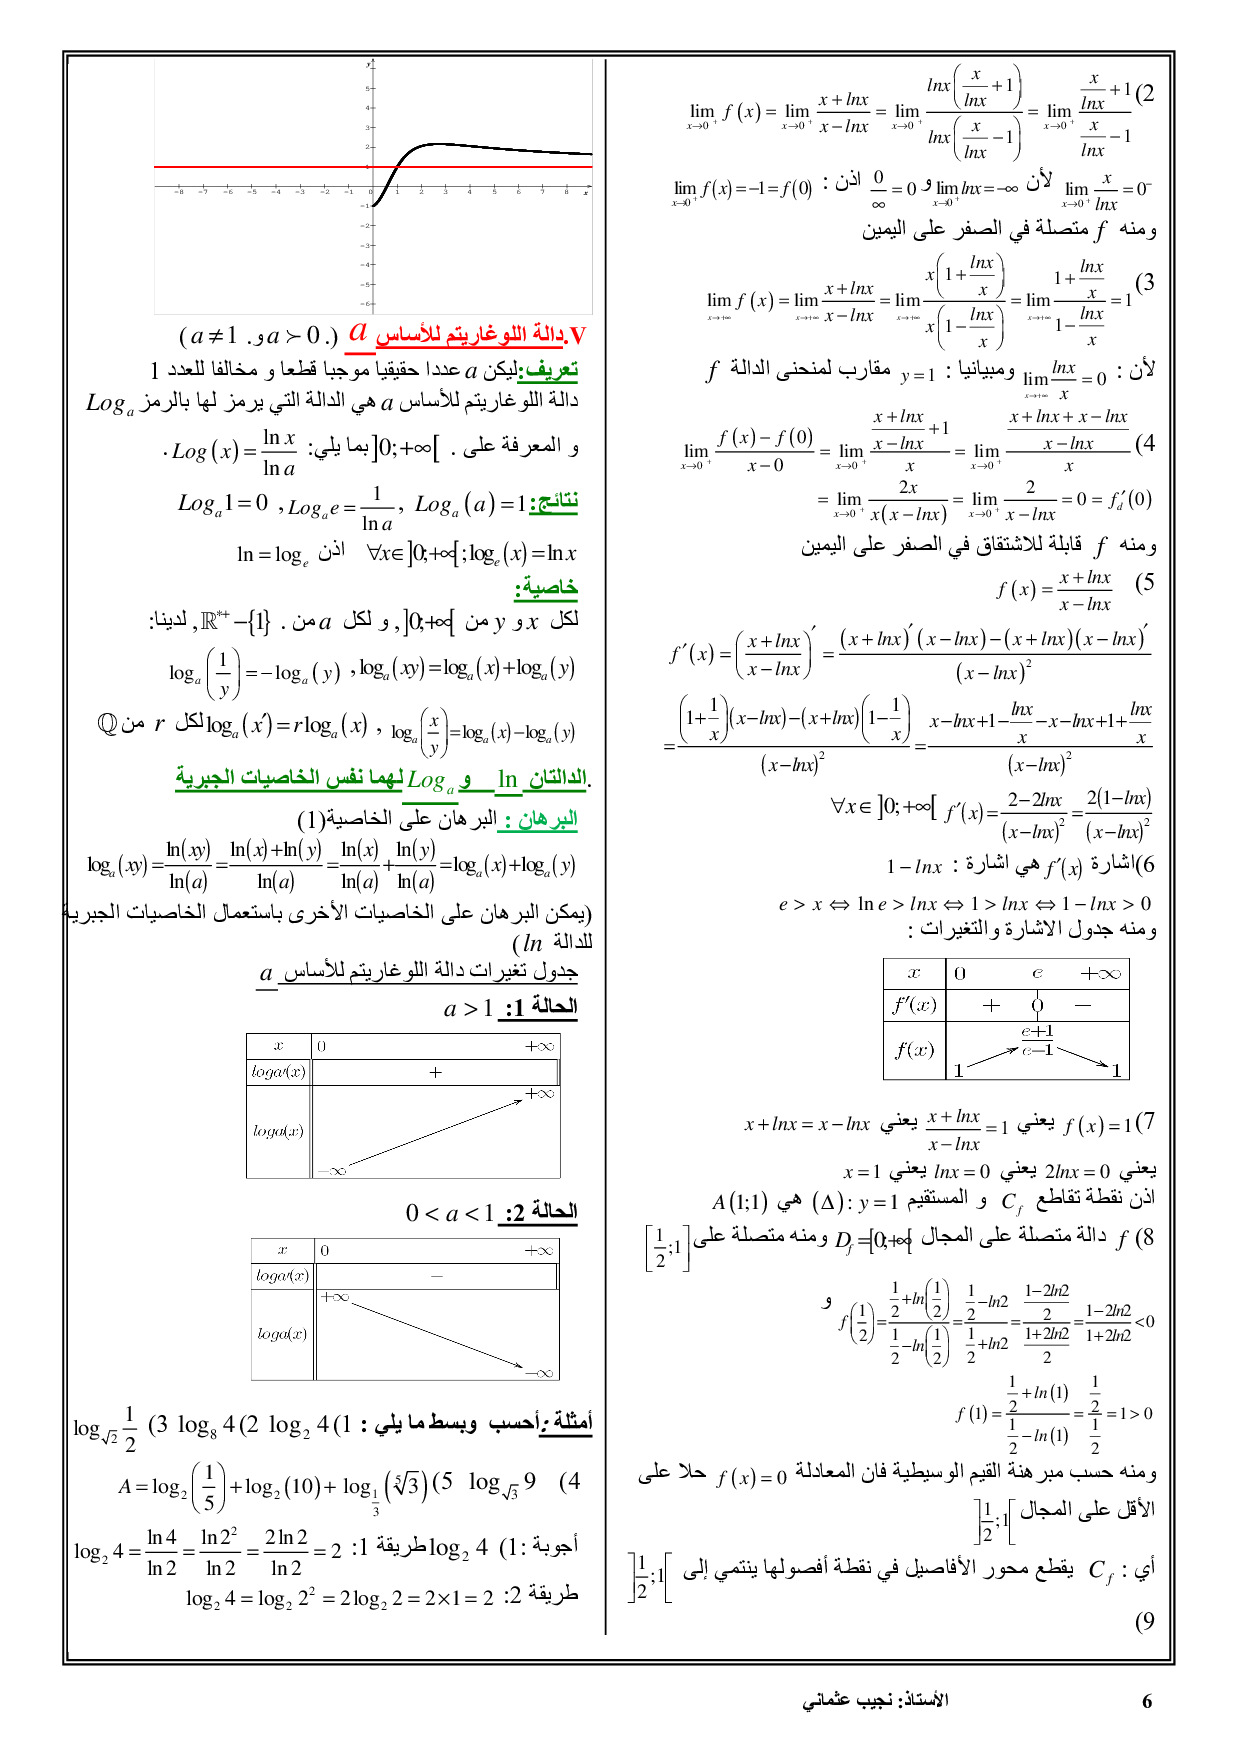 2) lim_{x→0+} f(x) = lim_{x→0+} (x+lnx)/(x−lnx) = lim_{x→0+} (lnx(x/lnx + 1))/(lnx(x/lnx − 1)) = lim_{x→0+} (x/lnx + 1)/(x/lnx − 1)
lim_{x→0+} x/lnx = 0⁻ لأن lim_{x→0+} lnx = −∞ و 0/∞ = 0 اذن : lim_{x→0+} f(x) = −1 = f(0)
ومنه f متصلة في الصفر على اليمين
3) lim_{x→+∞} f(x) = lim_{x→+∞} (x+lnx)/(x−lnx) = lim_{x→+∞} (x(1+lnx/x))/(x(1−lnx/x)) = lim_{x→+∞} (1+lnx/x)/(1−lnx/x) = 1
لأن : lim_{x→+∞} lnx/x = 0 ومبيانيا : y = 1 مقارب لمنحنى الدالة f
4) lim_{x→0+} (f(x)−f(0))/(x−0) = lim_{x→0+} ((x+lnx)/(x−lnx) + 1)/x = lim_{x→0+} ((x+lnx+x−lnx)/(x−lnx))/x
= lim_{x→0+} 2x/(x(x−lnx)) = lim_{x→0+} 2/(x−lnx) = 0 = f′_d(0)
ومنه f قابلة للاشتقاق في الصفر على اليمين
5) f(x) = (x+lnx)/(x−lnx)
f′(x) = ((x+lnx)/(x−lnx))′ = ((x+lnx)′(x−lnx)−(x+lnx)(x−lnx)′)/(x−lnx)²
= ((1+1/x)(x−lnx)−(x+lnx)(1−1/x))/(x−lnx)² = (x−lnx+1−lnx/x−x−lnx+1+lnx/x)/(x−lnx)²
∀x∈]0;+∞[ f′(x) = (2−2lnx)/(x−lnx)² = 2(1−lnx)/(x−lnx)²
6)اشارة f′(x) هي اشارة : 1−lnx
e > x ⇔ ln e > lnx ⇔ 1 > lnx ⇔ 1−lnx > 0
ومنه جدول الاشارة والتغيرات :
x 0 e +∞
f′(x) + 0 −
f(x) 1 (e+1)/(e−1) 1
7) f(x) = 1 يعني (x+lnx)/(x−lnx) = 1 يعني x+lnx = x−lnx
يعني 2lnx = 0 يعني lnx = 0 يعني x = 1
اذن نقطة تقاطع C_f و المستقيم (Δ): y = 1 هي A(1;1)
8) f دالة متصلة على المجال D_f = [0;+∞[ ومنه متصلة على [1/2;1]
و f(1/2) = (1/2+ln(1/2))/(1/2−ln(1/2)) = (1/2−ln2)/(1/2+ln2) = ((1−2ln2)/2)/((1+2ln2)/2) = (1−2ln2)/(1+2ln2) < 0
f(1) = (1/2+ln(1))/(1/2−ln(1)) = (1/2)/(1/2) = 1 > 0
ومنه حسب مبرهنة القيم الوسيطية فان المعادلة f(x) = 0 حلا على
الأقل على المجال ]1/2;1[
أي : C_f يقطع محور الأفاصيل في نقطة أفصولها ينتمي إلى ]1/2;1[
9)
y
5
4
3
2
1
−8 −7 −6 −5 −4 −3 −2 −1 0 1 2 3 4 5 6 7 8 x
−1
−2
−3
−4
−5
−6
V.دالة اللوغاريتم للأساس a (.a ≻ 0 و. a ≠ 1 )
تعريف:ليكن a عددا حقيقيا موجبا قطعا و مخالفا للعدد 1
دالة اللوغاريتم للأساس a هي الدالة التي يرمز لها بالرمز Log_a
و المعرفة على . ]0;+∞[ بما يلي: Log(x) = ln x/ln a .
نتائج: Log_a(a) = 1 , Log_a e = 1/ln a , Log_a 1 = 0
∀x∈]0;+∞[ ; log_e(x) = ln x اذن ln = log_e
خاصية:
لكل x و y من ]0;+∞[, و لكل a من . ℝ*⁺−{1}, لدينا:
log_a(xy) = log_a(x)+log_a(y) , log_a(1/y) = −log_a(y)
log_a(x/y) = log_a(x)−log_a(y) , log_a(x^r) = r log_a(x) لكل r من ℚ
.الدالتان ln و Log_a لهما نفس الخاصيات الجبرية
البرهان : البرهان على الخاصية(1)
log_a(xy) = ln(xy)/ln(a) = (ln(x)+ln(y))/ln(a) = ln(x)/ln(a) + ln(y)/ln(a) = log_a(x)+log_a(y)
(يمكن البرهان على الخاصيات الأخرى باستعمال الخاصيات الجبرية
للدالة ln )
جدول تغيرات دالة اللوغاريتم للأساس a
الحالة 1: a > 1
x 0 +∞
loga′(x) +
loga(x) −∞ +∞
الحالة 2: 0 < a < 1
x 0 +∞
loga′(x) −
loga(x) +∞ −∞
أمثلة :أحسب وبسط ما يلي : 1) log_2 4 2) log_8 4 3) log_√2 1/2
4) log_√3 9 5) A = log_2(1/5)+log_2(10)+log_{1/3}(⁵√3)
أجوبة :1) log_2 4 طريقة 1: log_2 4 = ln4/ln2 = ln2²/ln2 = 2ln2/ln2 = 2
طريقة 2: log_2 4 = log_2 2² = 2log_2 2 = 2×1 = 2
الأستاذ: نجيب عثماني 6